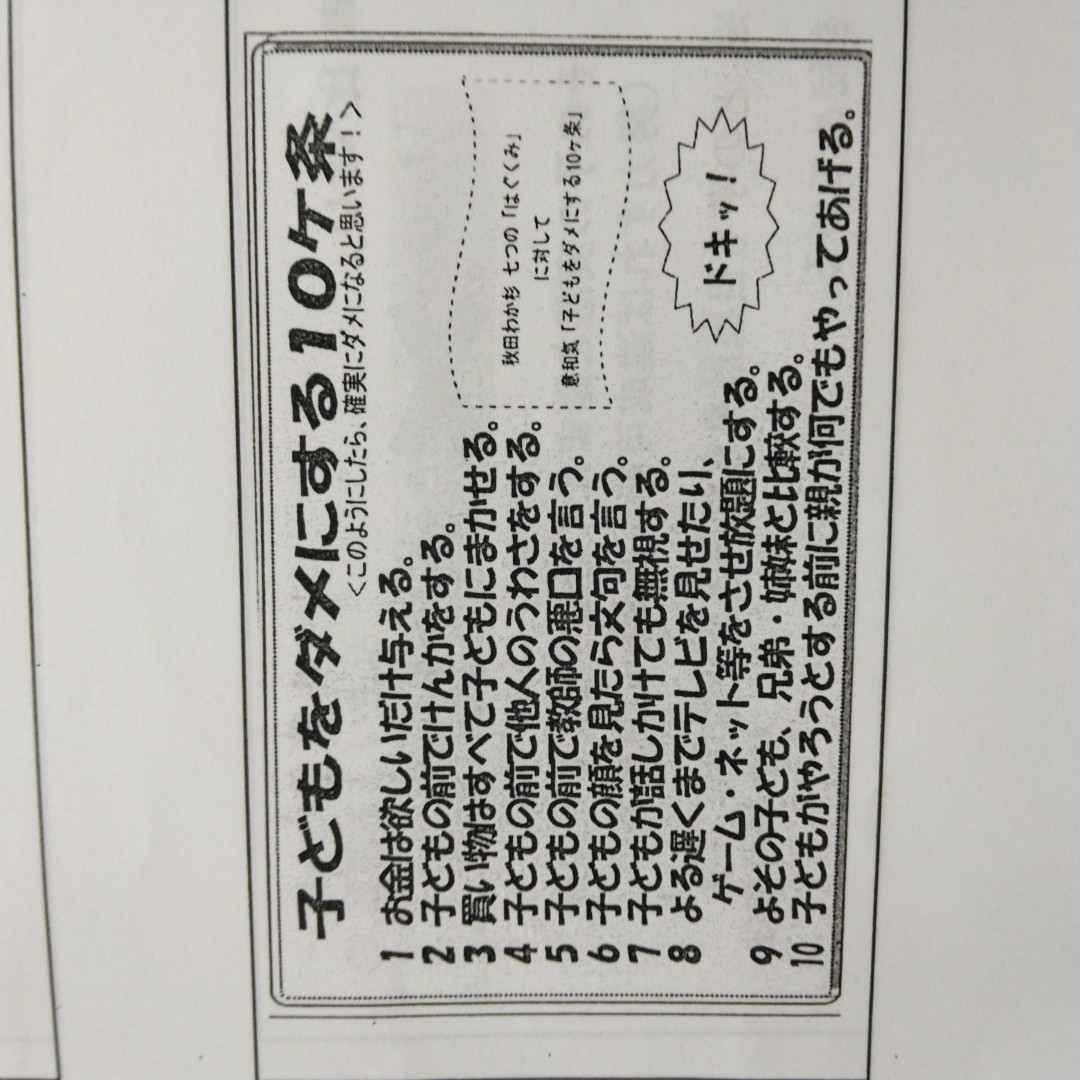 子どもをダメにする10ケ条
<このようにしたら、確実にダメになると思います！>
1 お金は欲しいだけ与える。
2 子どもの前でけんかをする。
3 買い物はすべて子どもにまかせる。
4 子どもの前で他人のうわさをする。
5 子どもの前で教師の悪口を言う。
6 子どもの顔を見たら文句を言う。
7 子どもが話しかけても無視する。
8 よる遅くまでテレビを見せたり、
ゲーム・ネット等をさせ放題にする。
9 よその子ども、兄弟・姉妹と比較する。
10 子どもがやろうとする前に親が何でもやってあげる。
秋田わか杉 七つの「はぐくみ」
に対して
意和気「子どもをダメにする10ヶ条」
ドキッ！